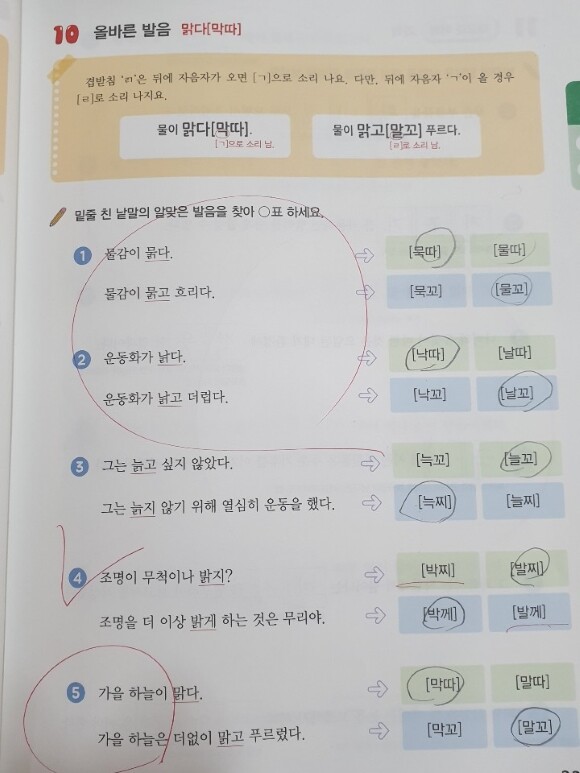 10 올바른 발음 맑다[막따]
겹받침 'ㄺ'은 뒤에 자음자가 오면 [ㄱ]으로 소리 나요. 다만, 뒤에 자음자 'ㄱ'이 올 경우
[ㄹ]로 소리 나지요.
물이 맑다[막따]. 물이 맑고[말꼬] 푸르다.
[ㄱ]으로 소리 남. [ㄹ]로 소리 남.
밑줄 친 낱말의 알맞은 발음을 찾아 ○표 하세요.
1 물감이 묽다. [묵따] [물따]
물감이 묽고 흐리다. [묵꼬] [물꼬]
2 운동화가 낡다. [낙따] [날따]
운동화가 낡고 더럽다. [낙꼬] [날꼬]
3 그는 늙고 싶지 않았다. [늑꼬] [늘꼬]
그는 늙지 않기 위해 열심히 운동을 했다. [늑찌] [늘찌]
4 조명이 무척이나 밝지? [박찌] [발찌]
조명을 더 이상 밝게 하는 것은 무리야. [박께] [발께]
5 가을 하늘이 맑다. [막따] [말따]
가을 하늘은 더없이 맑고 푸르렀다. [막꼬] [말꼬]